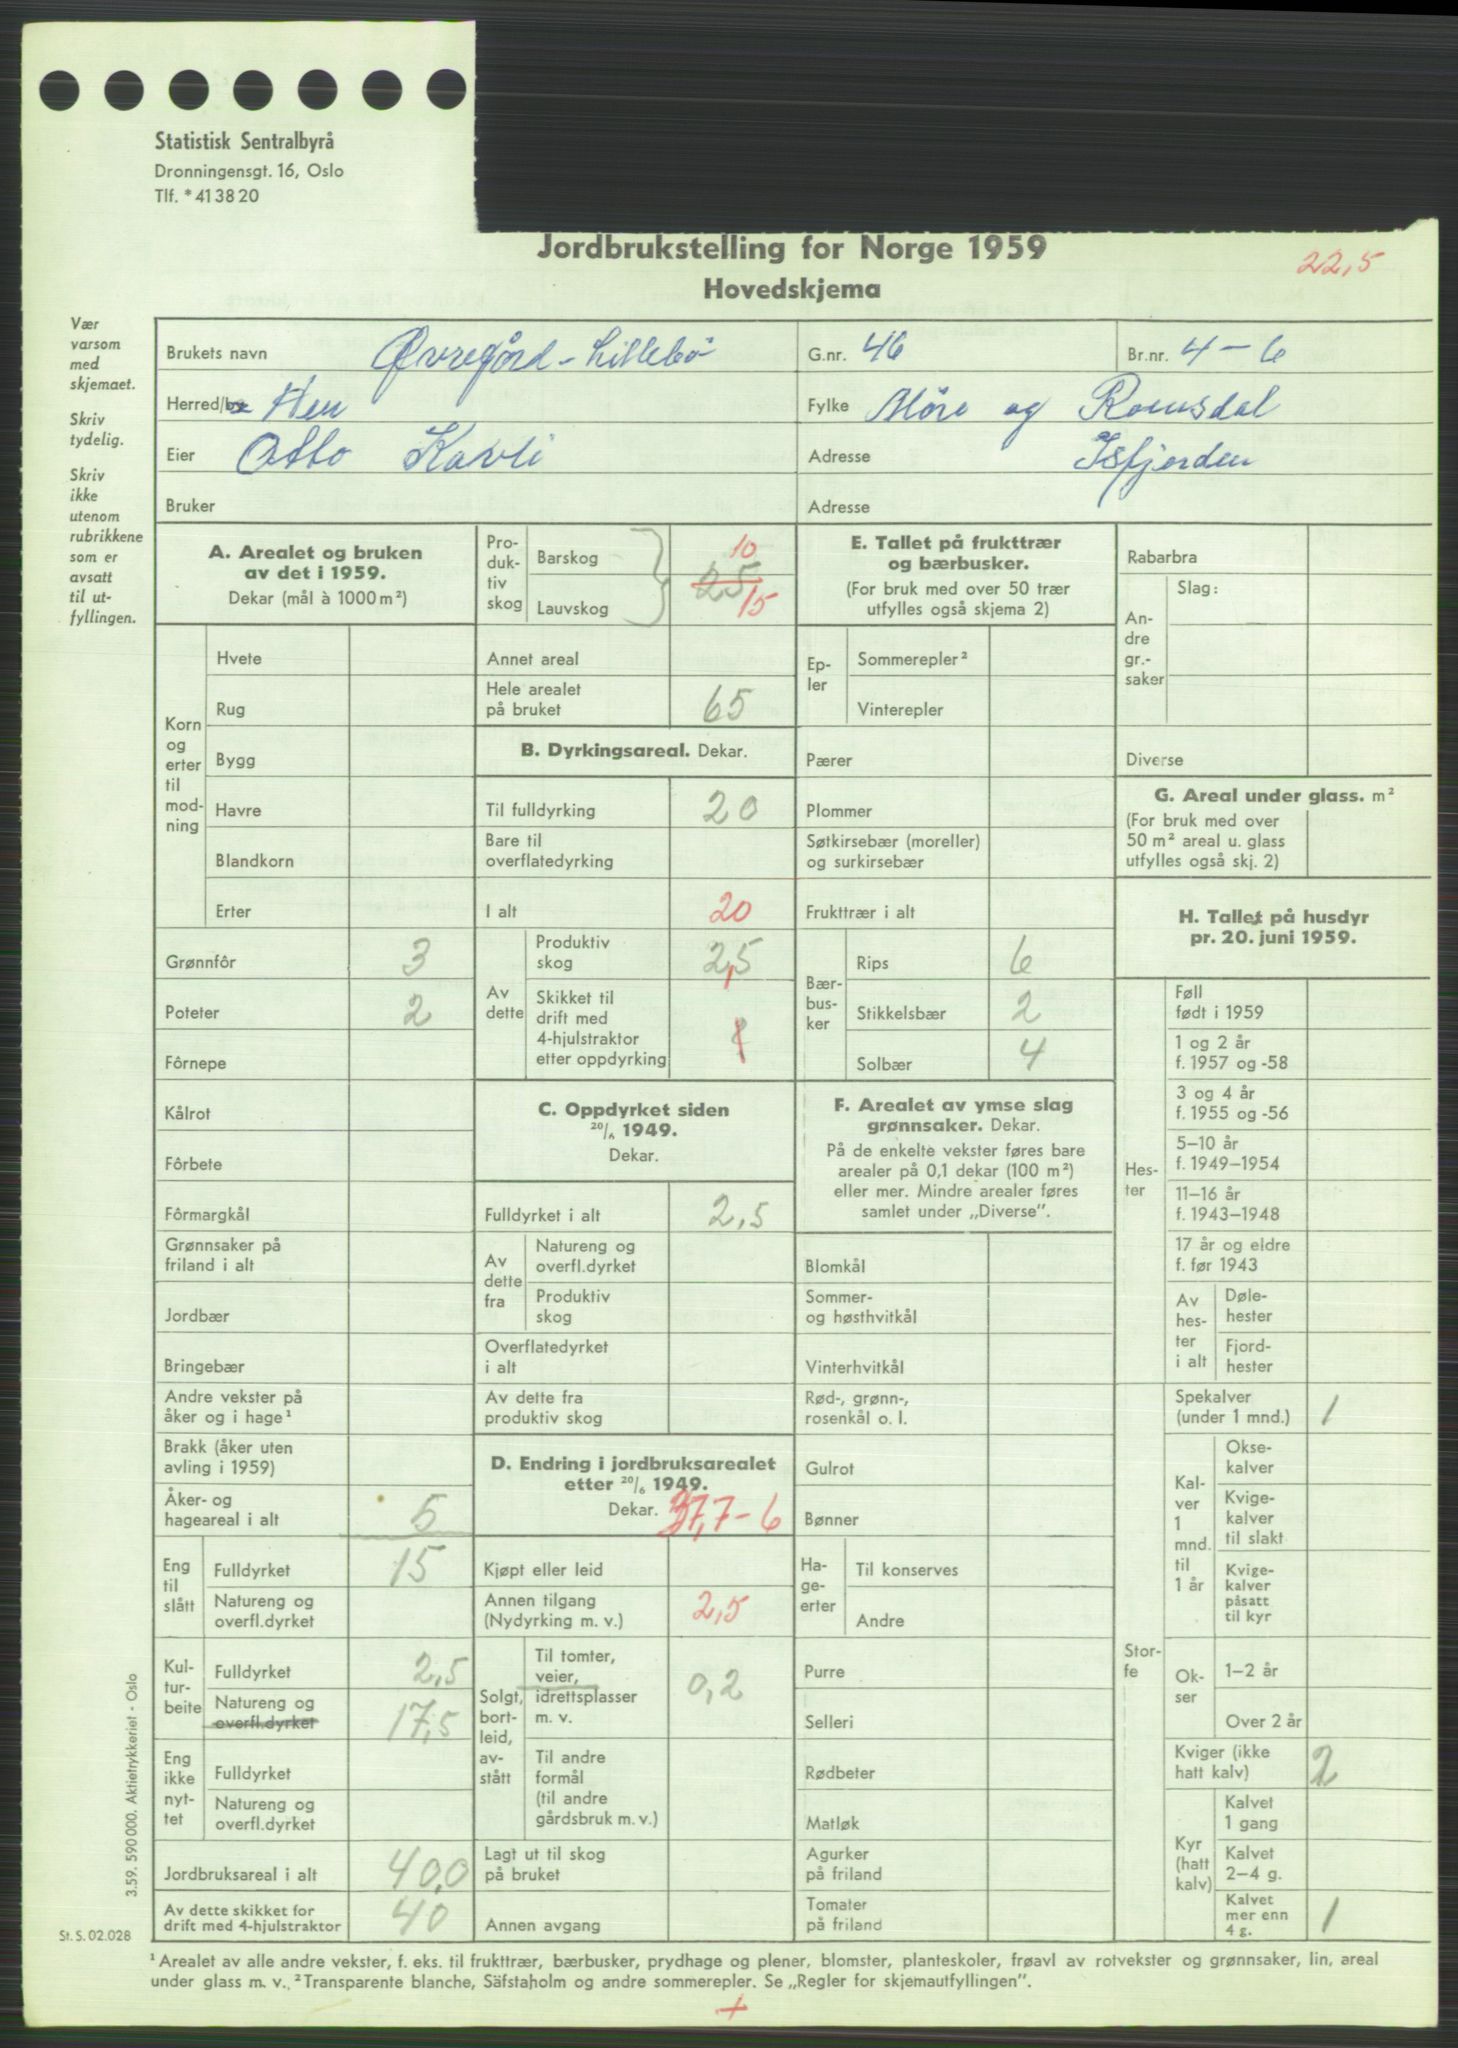 Statistisk Sentralbyrå
Dronningensgt. 16, Oslo
Tlf. * 41 38 20
Jordbrukstelling for Norge 1959
Hovedskjema
22,5
Vær
varsom
med
skjemaet.
Skriv
tydelig.
Skriv
ikke
utenom
rubrikkene
som er
avsatt
til ut-
fyllingen.
Brukets navn Øvregård - Lillebø G.nr. 46 Br.nr. 4 - 6
Herred/ Hen Fylke Møre og Romsdal
Eier Otto Kavli Adresse Isfjorden
Bruker Adresse
A. Arealet og bruken
av det i 1959.
Dekar (mål à 1000 m²)
Korn
og
erter
til
mod-
ning
Hvete
Rug
Bygg
Havre
Blandkorn
Erter
Grønnfôr 3
Poteter 2
Fôrnepe
Kålrot
Fôrbete
Fôrmargkål
Grønnsaker på
friland i alt
Jordbær
Bringebær
Andre vekster på
åker og i hage¹
Brakk (åker uten
avling i 1959)
Åker- og
hageareal i alt 5
Eng
til
slått
Fulldyrket 15
Natureng og
overfl.dyrket
Kul-
tur-
beite
Fulldyrket 2,5
Natureng og
overfl.dyrket 17,5
Eng
ikke
nyt-
tet
Fulldyrket
Natureng og
overfl.dyrket
Jordbruksareal i alt 40,0
Av dette skikket for
drift med 4-hjulstraktor 40
Pro-
duk-
tiv
skog
Barskog 10
25
Lauvskog 15
Annet areal
Hele arealet
på bruket 65
B. Dyrkingsareal. Dekar.
Til fulldyrking 20
Bare til
overflatedyrking
I alt 20
Av
dette
Produktiv
skog 2,5
Skikket til
drift med
4-hjulstraktor
etter oppdyrking
C. Oppdyrket siden
20/6 1949.
Dekar.
Fulldyrket i alt 2,5
Av
dette
fra
Natureng og
overfl.dyrket
Produktiv
skog
Overflatedyrket
i alt
Av dette fra
produktiv skog
D. Endring i jordbruksarealet
etter 20/6 1949.
Dekar. 37,7 - 6
Kjøpt eller leid
Annen tilgang
(Nydyrking m. v.) 2,5
Solgt,
bort-
leid,
av-
stått
Til tomter,
veier,
idrettsplasser
m. v. 0,2
Til andre
formål
(til andre
gårdsbruk m. v.)
Lagt ut til skog
på bruket
Annen avgang
E. Tallet på frukttrær
og bærbusker.
(For bruk med over 50 trær
utfylles også skjema 2)
Ep-
ler
Sommerepler²
Vinterepler
Pærer
Plommer
Søtkirsebær (moreller)
og surkirsebær
Frukttrær i alt
Bær-
bus-
ker
Rips 6
Stikkelsbær 2
Solbær 4
F. Arealet av ymse slag
grønnsaker. Dekar.
På de enkelte vekster føres bare
arealer på 0,1 dekar (100 m²)
eller mer. Mindre arealer føres
samlet under „Diverse”.
Blomkål
Sommer-
og høsthvitkål
Vinterhvitkål
Rød-, grønn-,
rosenkål o. l.
Gulrot
Bønner
Ha-
ge-
erter
Til konserves
Andre
Purre
Selleri
Rødbeter
Matløk
Agurker
på friland
Tomater
på friland
Rabarbra
An-
dre
gr.-
saker
Slag:
Diverse
G. Areal under glass. m²
(For bruk med over
50 m² areal u. glass
utfylles også skj. 2)
H. Tallet på husdyr
pr. 20. juni 1959.
Hes-
ter
Føll
født i 1959
1 og 2 år
f. 1957 og -58
3 og 4 år
f. 1955 og -56
5–10 år
f. 1949–1954
11–16 år
f. 1943–1948
17 år og eldre
f. før 1943
Av
hes-
ter
i alt
Døle-
hester
Fjord-
hester
Stor-
fe
Spekalver
(under 1 mnd.) 1
Kal-
ver
1
mnd.
til
1 år
Okse-
kalver
Kvige-
kalver
til slakt
Kvige-
kalver
påsatt
til kyr
Ok-
ser
1–2 år
Over 2 år
Kviger (ikke
hatt kalv) 2
Kyr
(hatt
kalv)
Kalvet
1 gang
Kalvet
2–4 g.
Kalvet
mer enn
4 g. 1
3.59. 590 000. Aktietrykkeriet - Oslo
St. S. 02.028
¹ Arealet av alle andre vekster, f. eks. til frukttrær, bærbusker, prydhage og plener, blomster, planteskoler, frøavl av rotvekster og grønnsaker, lin, areal
under glass m. v. ² Transparente blanche, Säfstaholm og andre sommerepler. Se „Regler for skjemautfyllingen”.
+